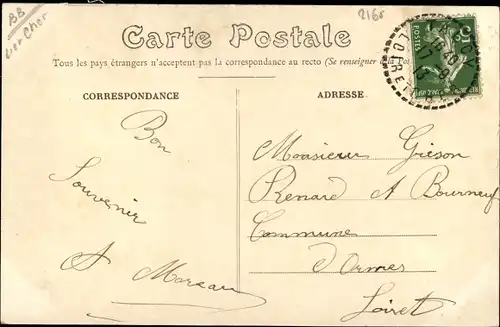 BB
vor Cher
2165
Carte Postale
Tous les pays étrangers n'acceptent pas la correspondance au recto (Se renseigner à la Pos
CORRESPONDANCE
ADRESSE
Bon
Souvenir
A Moreau
Monsieur Grieson
Renard A Bourneuf
Commune
d'Ormes
Loiret
POSTES
LOIRET